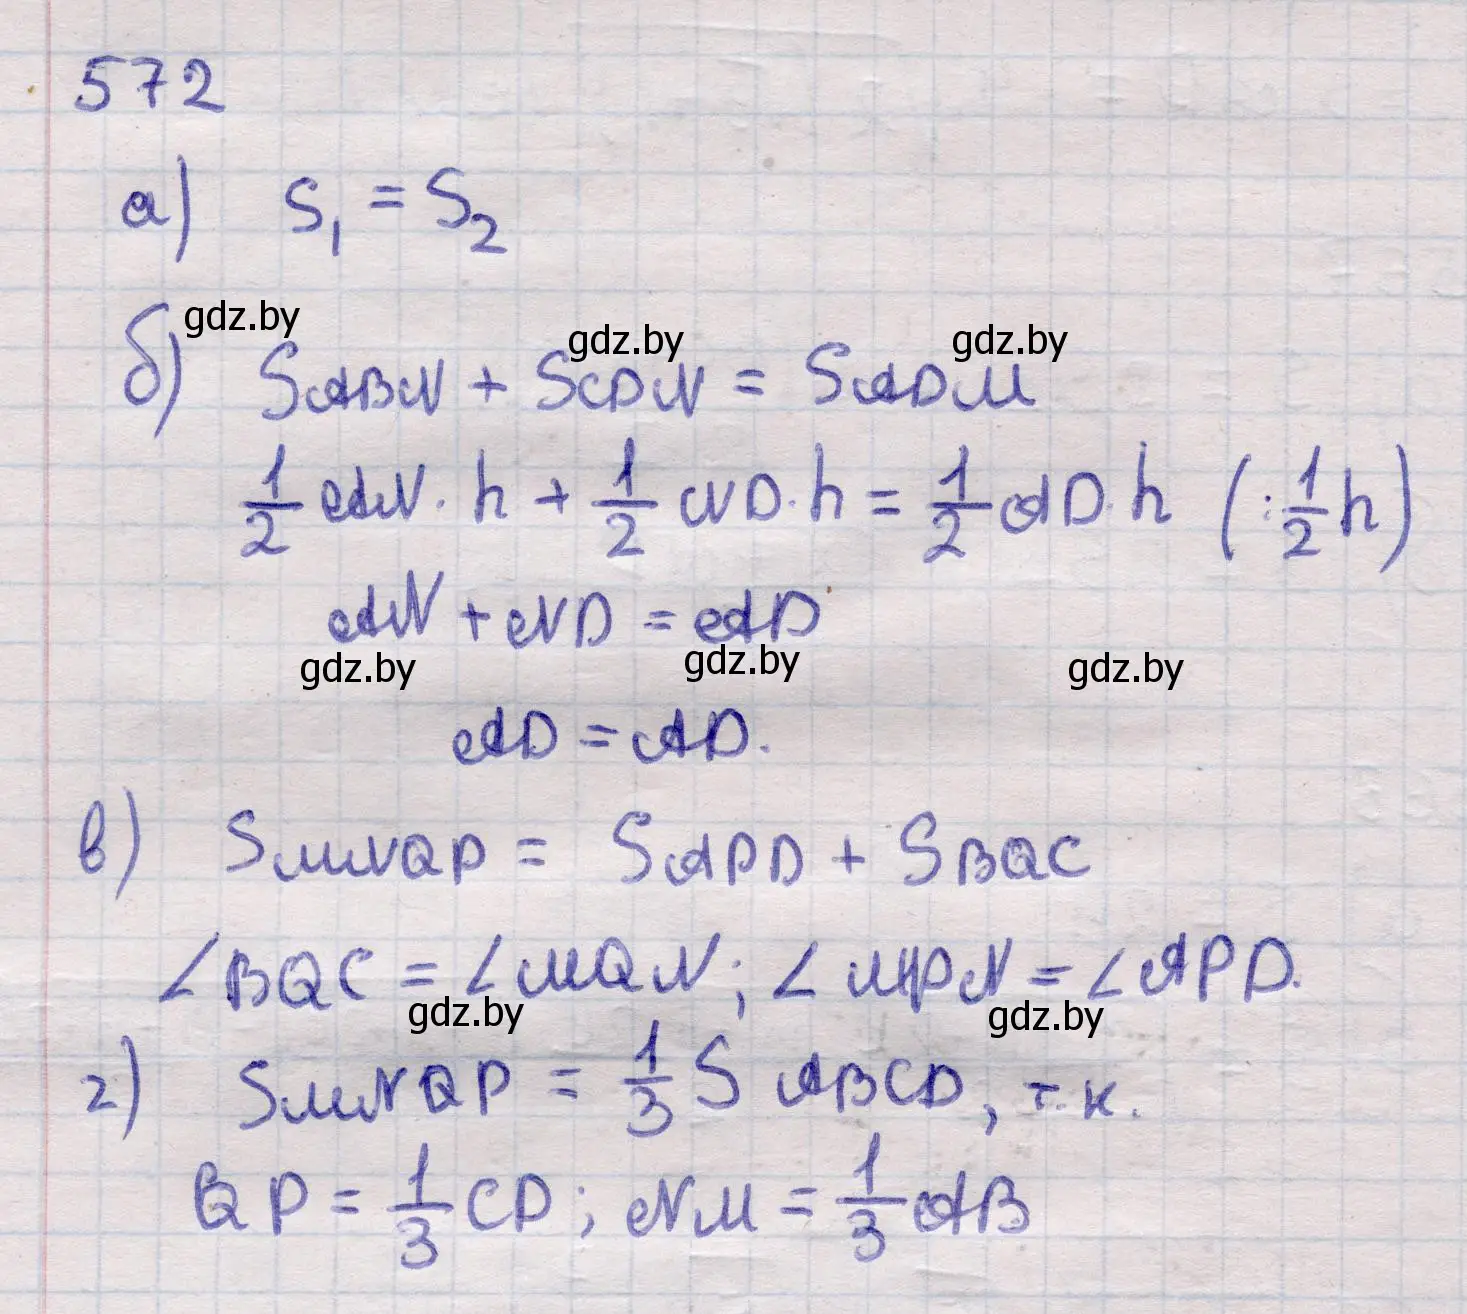 572
а) S₁ = S₂
gdz.by gdz.by gdz.by
б) S ABN + S CDN = S ADM
1/2 AN · h + 1/2 ND · h = 1/2 AD · h (: 1/2 h)
AN + ND = AD
gdz.by gdz.by gdz.by
AD = AD.
в) S MNQP = S APD + S BQC
∠BQC = ∠MQN; ∠MPN = ∠APD.
gdz.by gdz.by
г) S MNQP = 1/3 S ABCD, т.к.
QP = 1/3 CD; NM = 1/3 AB